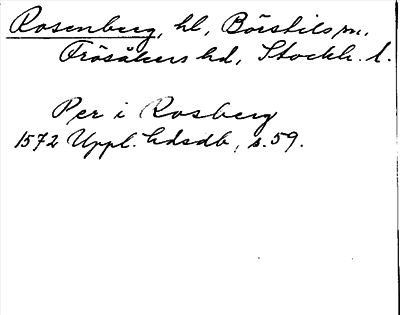 Rosenberg, hl, Börstils sn,
Frösåkers hd, Stockh. l.
Per i Rosberg
1572 Uppl. hdsdb, s. 59.